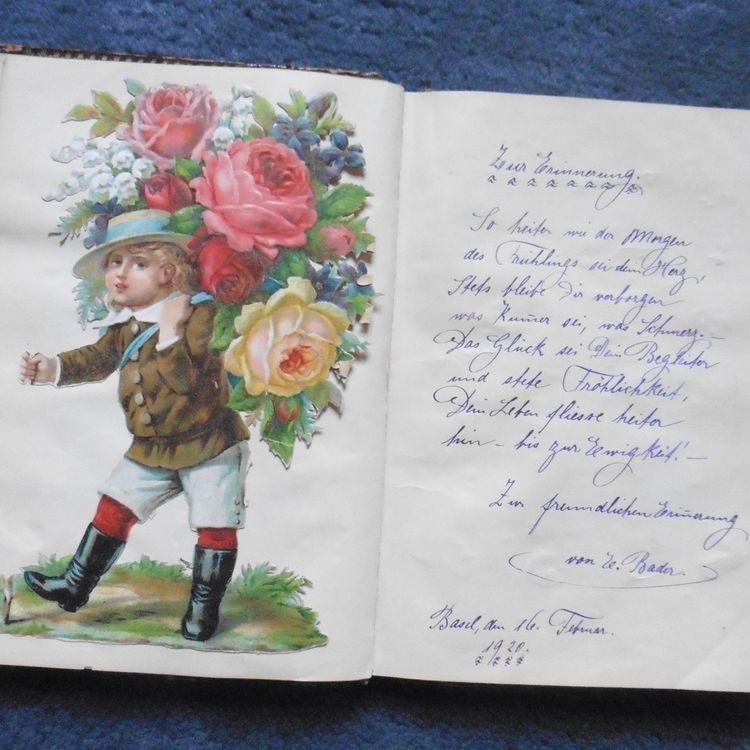 Zur Erinnerung.
So heiter wie der Morgen
des Frühlings sei dein Herz,
Stets bleibe Dir verborgen
was Kum̄er sei, was Schmerz. –
Das Glück sei Dein Begleiter
und stete Fröhlichkeit,
Dein Leben fliesse heiter
hin – bis zur Ewigkeit! –
Zur freundlichen Erin̄erung
von E. Bader.
Basel, den 16. Februar.
1920.